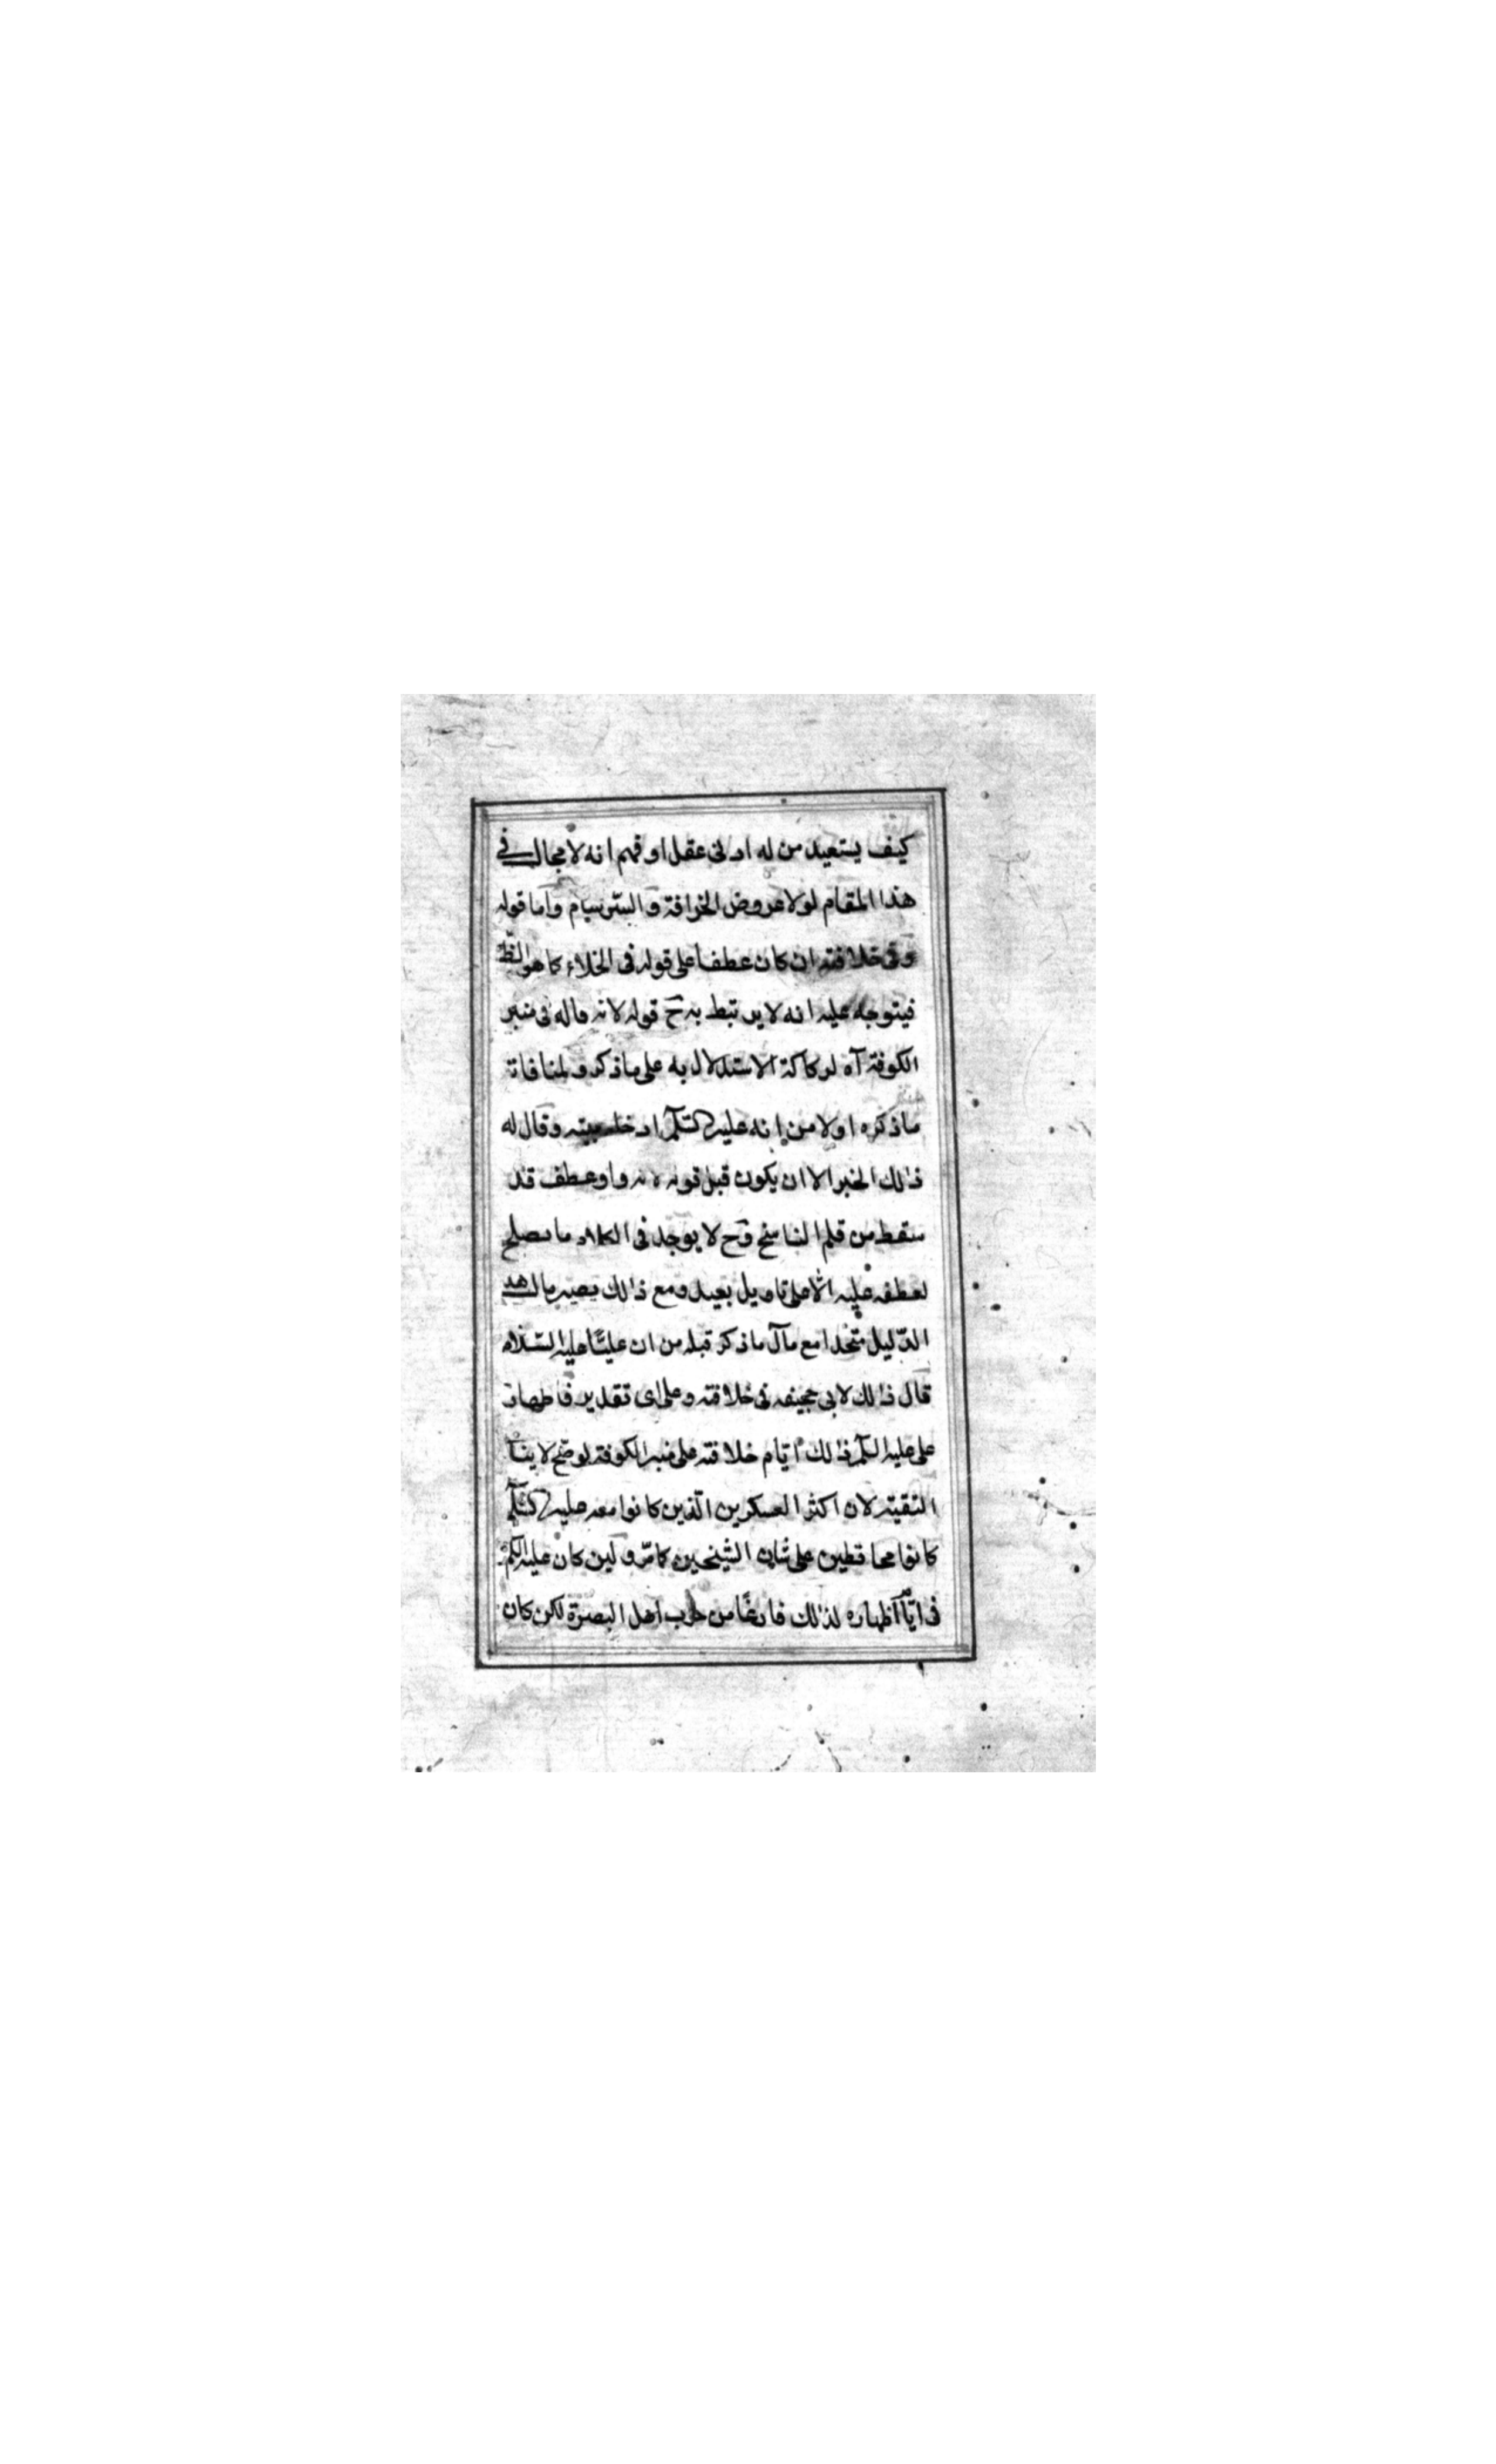 كيف يستعيد من له ادنى عقل او فهم انه لا مجال في
هذا المقام لولا عروض الخرافة و السّرسام واما قوله
وفى خلافته ان كان عطفا على قوله فى الخلاء كما هو الظ
فيتوجه عليه انه لا يرتبط به ح قوله لانه قاله فى منبر
الكوفة آه لركاكة الاستدلال به على ما ذكر و لمنافاة
ما ذكره اولا من انه عليه السلم ادخله بيته وقال له
ذلك الخبر الا ان يكون قبل قوله لانه واو عطف قد
سقط من قلم الناسخ وح لا يوجد فى الكلام ما يصلح
لعطفه عليه الا على تاويل بعيد ومع ذلك يصير مال هذ
الدّليل متّحدا مع مآل ما ذكر قبله من ان عليّا عليه السّلام
قال ذلك لابى جحيفه فى خلافته وعلى اى تقدير فاظهار
على عليه السلم ذلك ايّام خلافته على منبر الكوفة لو صّح لا ينا
التقيّه لان اكثر العسكرين الّذين كانوا معه عليه السلم
كانوا محافظين على شان الشيخين كما مرّ و لين كان عليه السلم
فى ايّام اظهاره لذلك فارغا من حرب اهل البصرة لكن كان